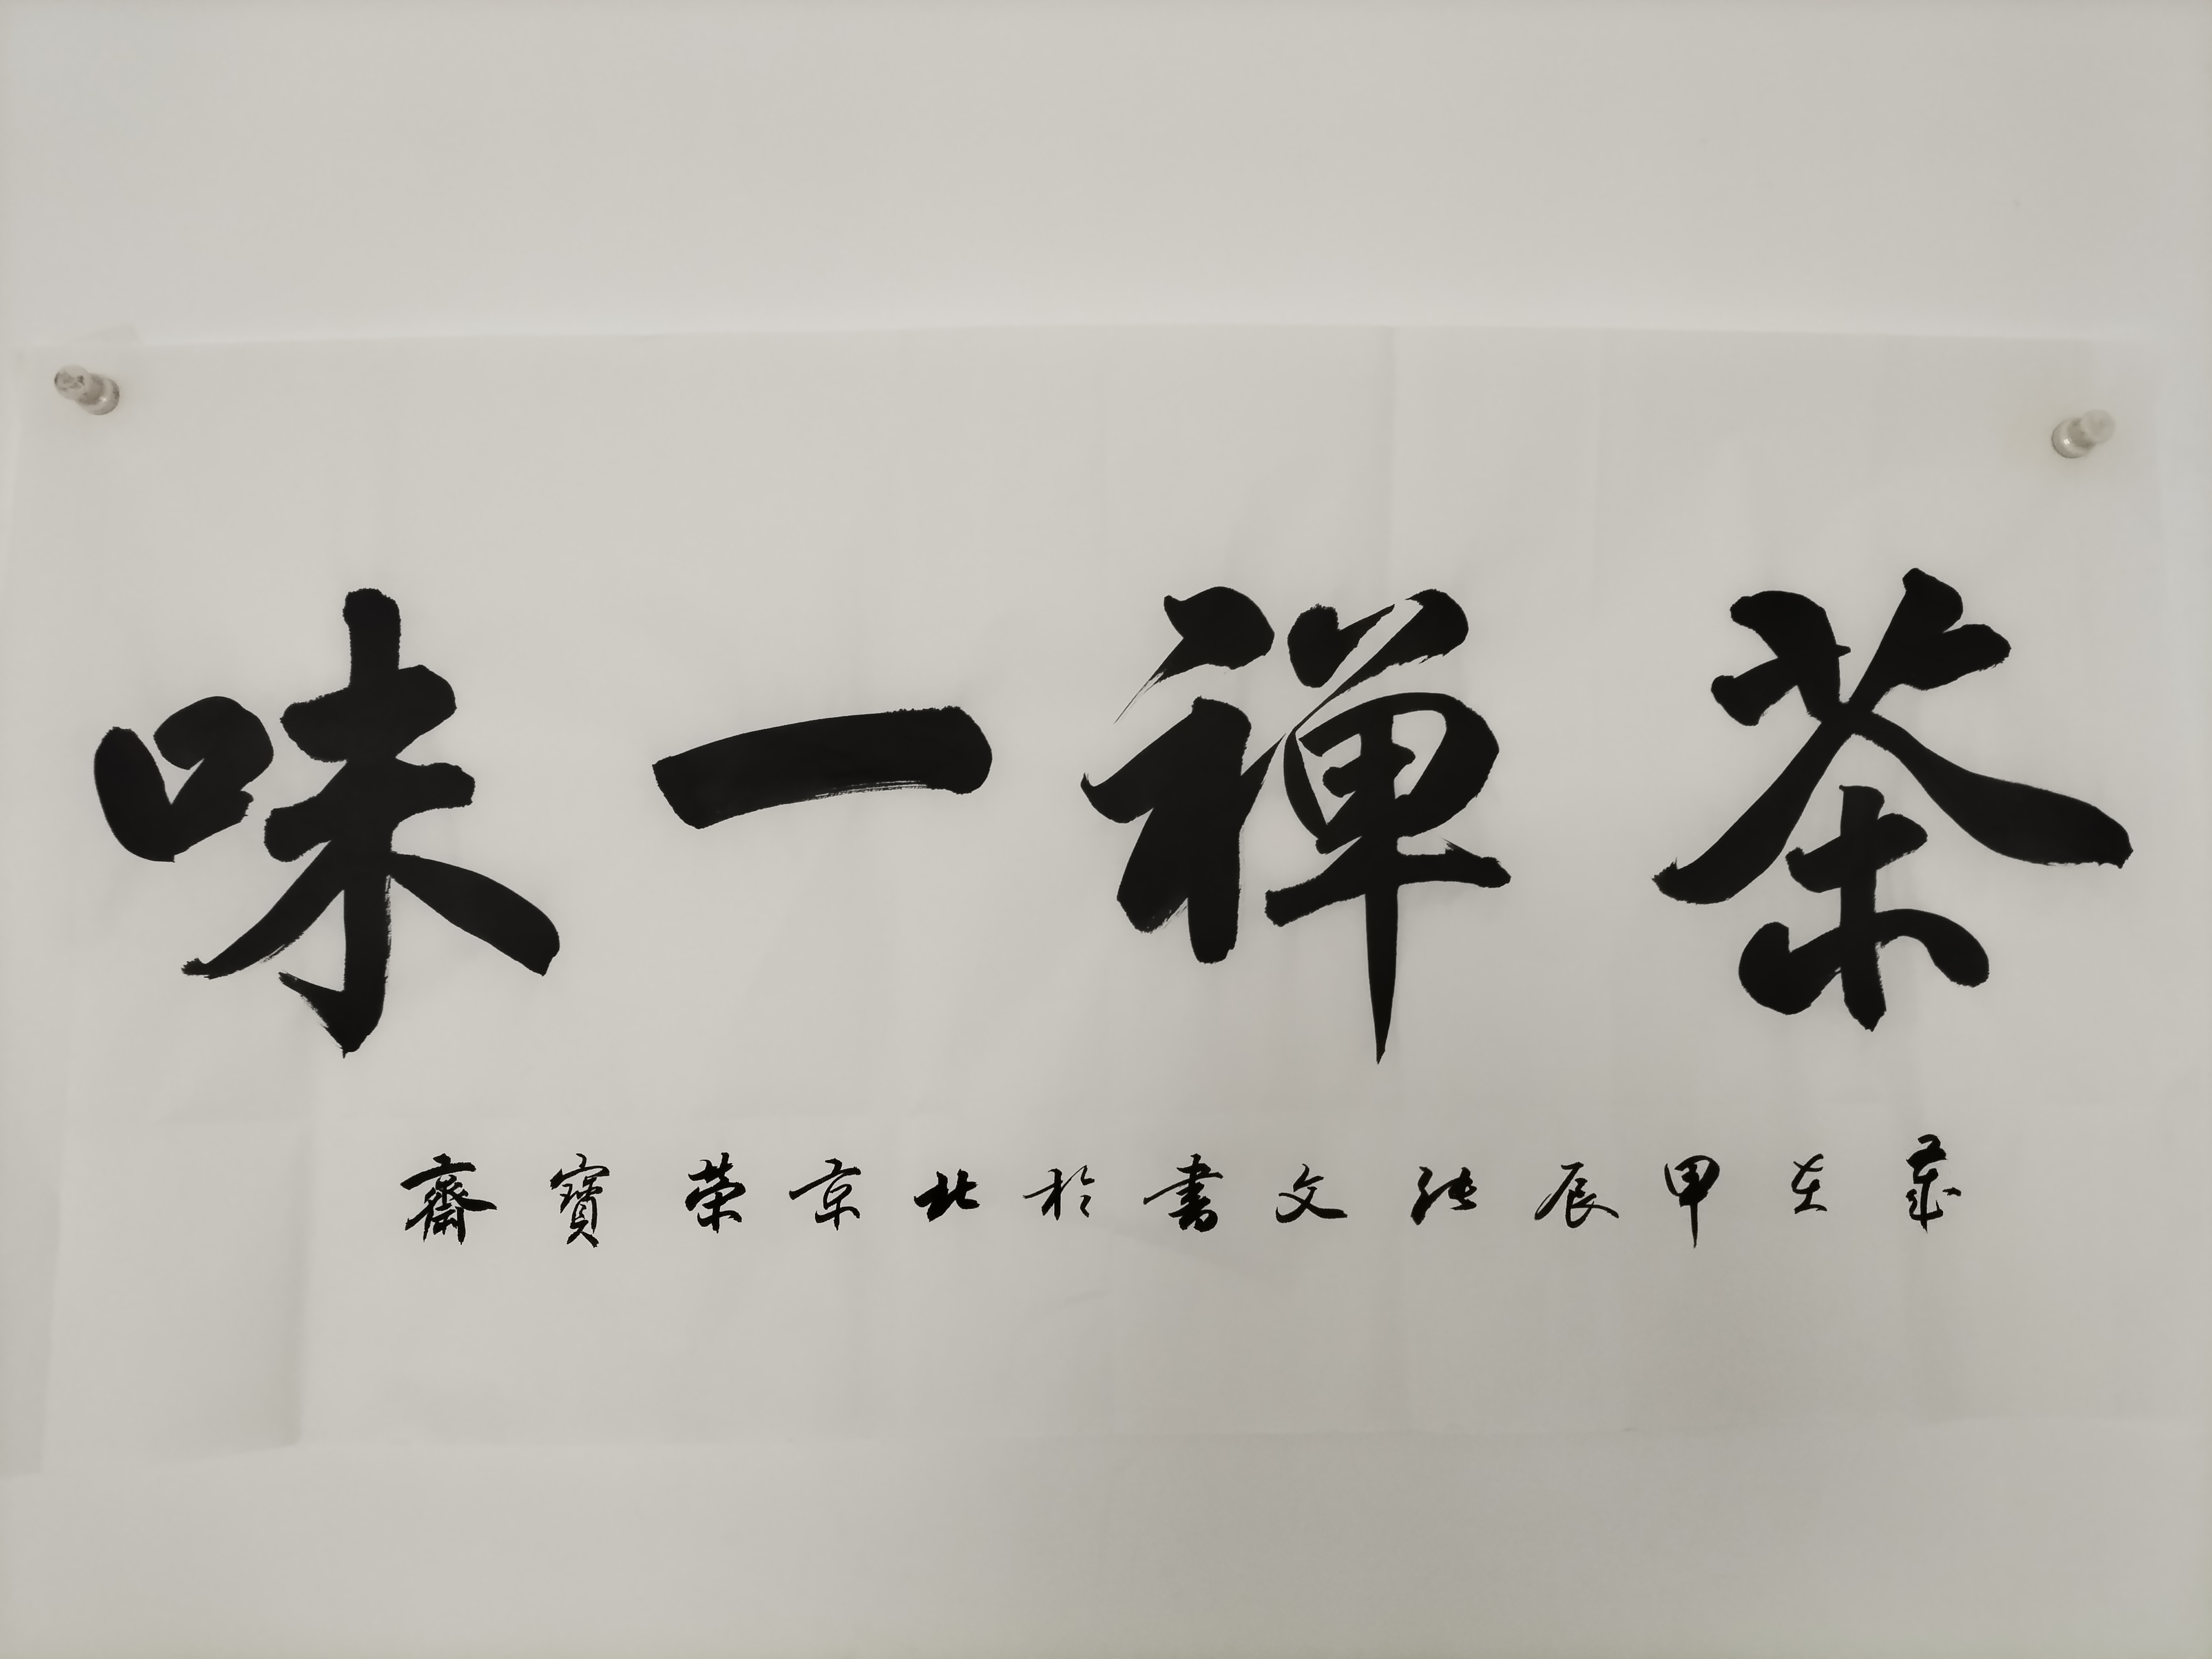 茶禅一味
歲在甲辰張文書於北京榮寶齋